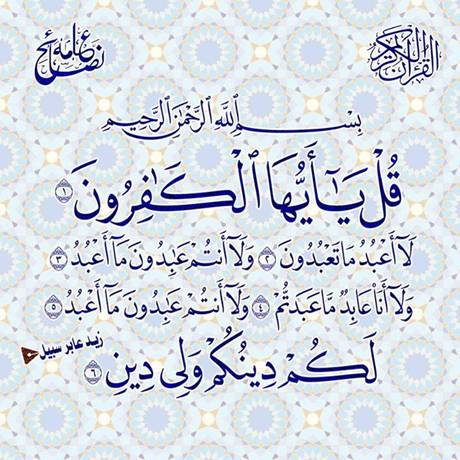 القرآن الكريم
نصائح عامة
بِسْمِ ٱللَّهِ ٱلرَّحْمَٰنِ ٱلرَّحِيمِ
قُلْ يَٰٓأَيُّهَا ٱلْكَٰفِرُونَ ١
لَآ أَعْبُدُ مَا تَعْبُدُونَ ٢ وَلَآ أَنتُمْ عَٰبِدُونَ مَآ أَعْبُدُ ٣
وَلَآ أَنَا۠ عَابِدٌ مَّا عَبَدتُّمْ ٤ وَلَآ أَنتُمْ عَٰبِدُونَ مَآ أَعْبُدُ ٥
زيد عابر سبيل
لَكُمْ دِينُكُمْ وَلِىَ دِينِ ٦